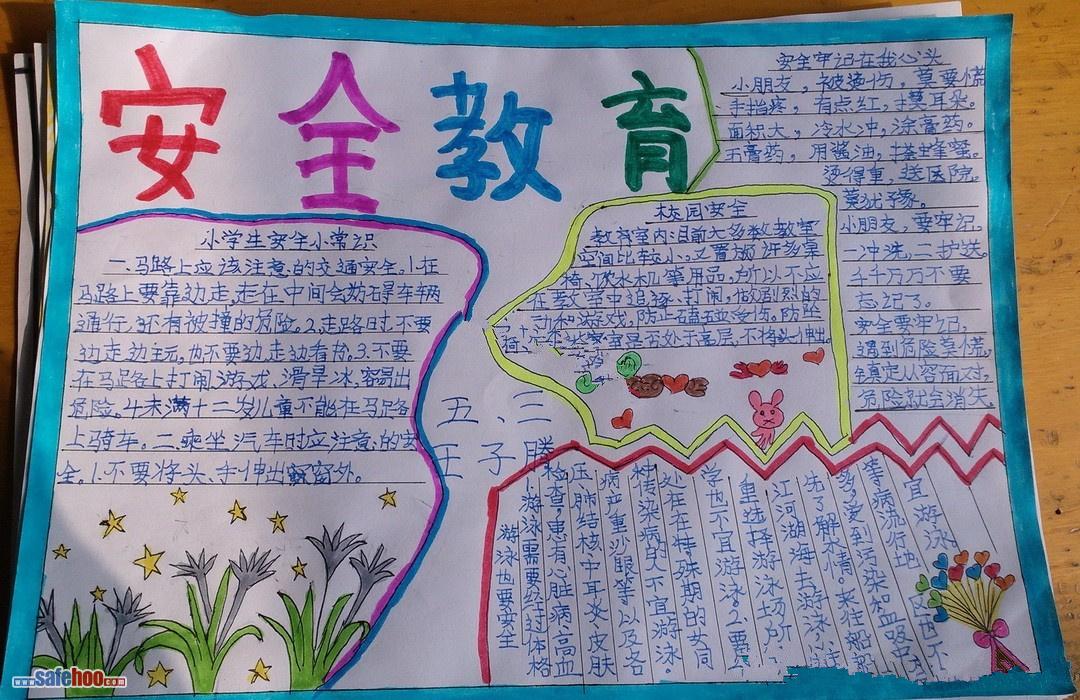 安全教育
小学生安全小常识
一.马路上应该注意的交通安全.1.在
马路上要靠边走,走在中间会妨碍车辆
通行,还有被撞的危险。2.走路时不要
边走边玩,也不要边走边看书。3.不要
在马路上打闹、游戏、滑旱冰,容易出
危险。4.未满十二岁儿童不能在马路
上骑车。二.乘坐汽车时应注意的安
全。1.不要将头、手伸出窗外。
五、三
王子腾
安全牢记在我心头
小朋友,被烫伤,莫要慌
手指疼,有点红,摸耳朵。
面积大,冷水冲,涂膏药。
无膏药,用酱油,搽蜂蜜。
烫得重,送医院。
莫犹豫。
小朋友,要牢记,
一冲洗,二护送。
千千万万不要
忘记了。
安全要牢记,
遇到危险莫慌,
镇定从容面对,
危险就会消失。
校园安全
教室内:目前大多数教室
空间比较小,又置放许多桌
椅、饮水机等用品,所以不应
在教室中追逐、打闹,做剧烈的
动和游戏,防止磕碰受伤。防坠
处于高层,不将头伸出
游泳也要安全
1.游泳需要经过体格
检查,患有心脏病、高血
压、肺结核、中耳炎、皮肤
病、严重沙眼等以及各
种传染病的人不宜游泳
处在特殊期的女同
学也不宜游泳。2.要
重选择游泳场所
江河湖海去游泳
先了解水情。来往船
多,受到污染和血吸
等病流行地
宜游泳
www.safehoo.com